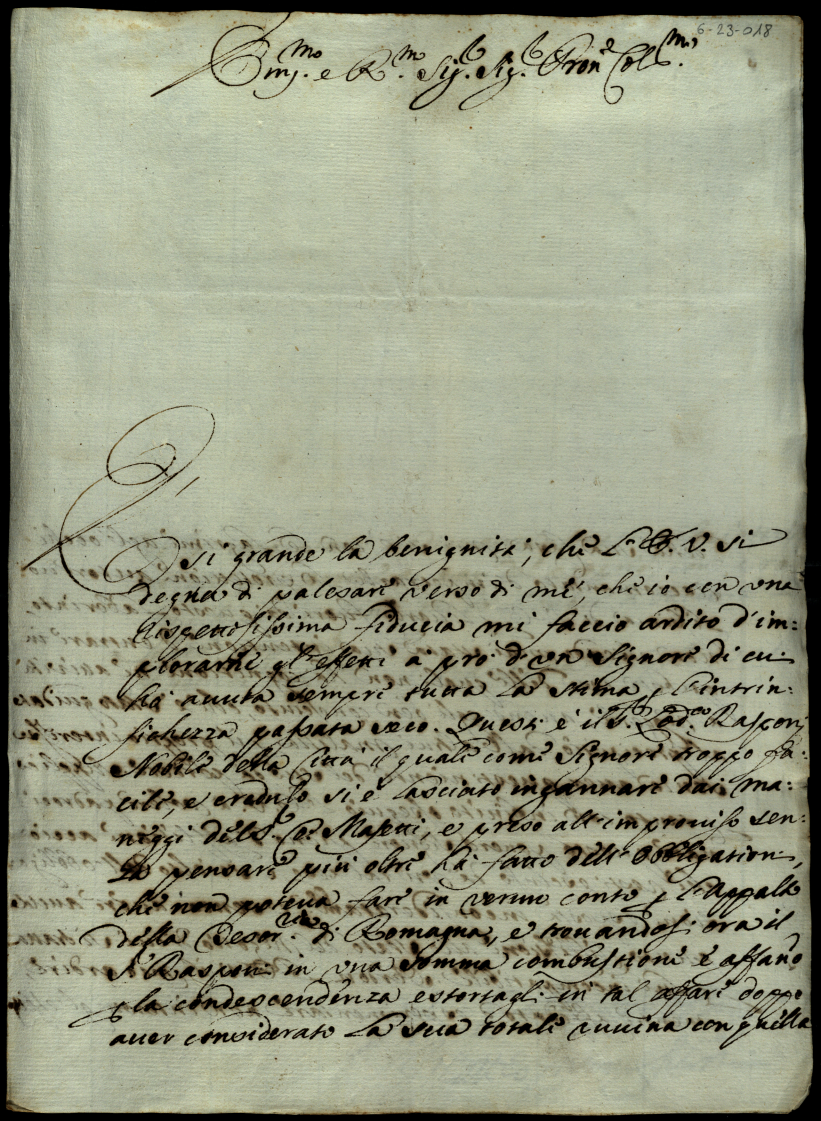 6-23-018
Em.mo e R.mo Sig.r Sig.r Pron.e Col.mo
È sì grande la benignità, che l'E.V. si
degna di palesare verso di me, che io con una
rispettosissima fiducia mi faccio ardito d'im=
plorarne gl'effetti à prò d'un Signore di cui
hà avuta sempre tutta la stima, e l'intrin=
sichezza passata seco. Questi è il S.r Lod.co Rasponi
Nobile della Città il quale come Signore troppo fa=
cile, e credulo si è lasciato ingannare dai ma=
neggi del S.r Masetti, e preso all'improviso sen=
za pensare più oltre hà fatto dell'Obbligationi,
che non poteva fare in verun conto p l'Appalto
della Tesor.ria di Romagna, e trovandosi ora il
S.r Rasponi in una somma combustione è affanno
p la condescendenza estortagli in tal affare doppo
aver considerato la sua totale ruuina con quella